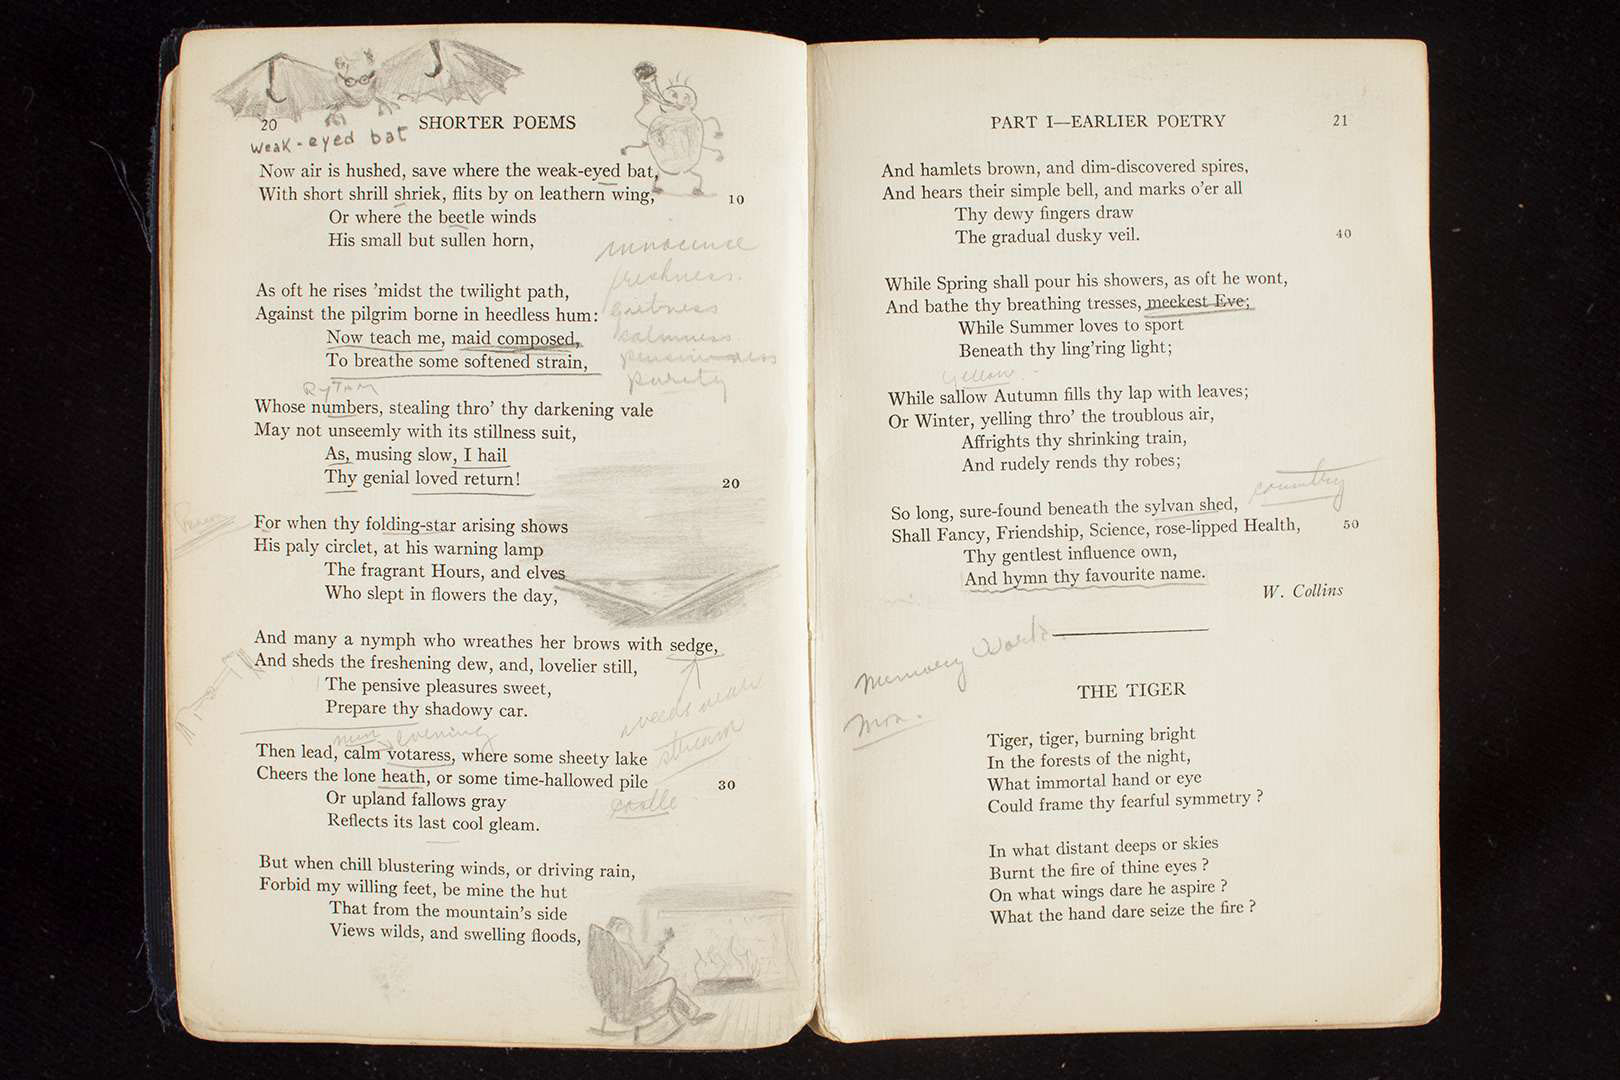 20 SHORTER POEMS
weak-eyed bat
Now air is hushed, save where the weak-eyed bat,
With short shrill shriek, flits by on leathern wing,
10
Or where the beetle winds
His small but sullen horn,
innocence
freshness.
As oft he rises 'midst the twilight path,
Against the pilgrim borne in heedless hum:
Now teach me, maid composed,
calmness.
To breathe some softened strain,
pensiveness
purity
RyTHM
Whose numbers, stealing thro' thy darkening vale
May not unseemly with its stillness suit,
As, musing slow, I hail
Thy genial loved return!
20
For when thy folding-star arising shows
His paly circlet, at his warning lamp
The fragrant Hours, and elves
Who slept in flowers the day,
And many a nymph who wreathes her brows with sedge,
And sheds the freshening dew, and, lovelier still,
The pensive pleasures sweet,
Prepare thy shadowy car.
weeds near
stream
nun evening
Then lead, calm votaress, where some sheety lake
Cheers the lone heath, or some time-hallowed pile
30
castle
Or upland fallows gray
Reflects its last cool gleam.
But when chill blustering winds, or driving rain,
Forbid my willing feet, be mine the hut
That from the mountain's side
Views wilds, and swelling floods,
PART I—EARLIER POETRY 21
And hamlets brown, and dim-discovered spires,
And hears their simple bell, and marks o'er all
Thy dewy fingers draw
The gradual dusky veil.
40
While Spring shall pour his showers, as oft he wont,
And bathe thy breathing tresses, meekest Eve;
While Summer loves to sport
Beneath thy ling'ring light;
yellow
While sallow Autumn fills thy lap with leaves;
Or Winter, yelling thro' the troublous air,
Affrights thy shrinking train,
And rudely rends thy robes;
country
So long, sure-found beneath the sylvan shed,
Shall Fancy, Friendship, Science, rose-lipped Health,
50
Thy gentlest influence own,
And hymn thy favourite name.
W. Collins
Memory Work
Mon.
THE TIGER
Tiger, tiger, burning bright
In the forests of the night,
What immortal hand or eye
Could frame thy fearful symmetry ?
In what distant deeps or skies
Burnt the fire of thine eyes ?
On what wings dare he aspire ?
What the hand dare seize the fire ?